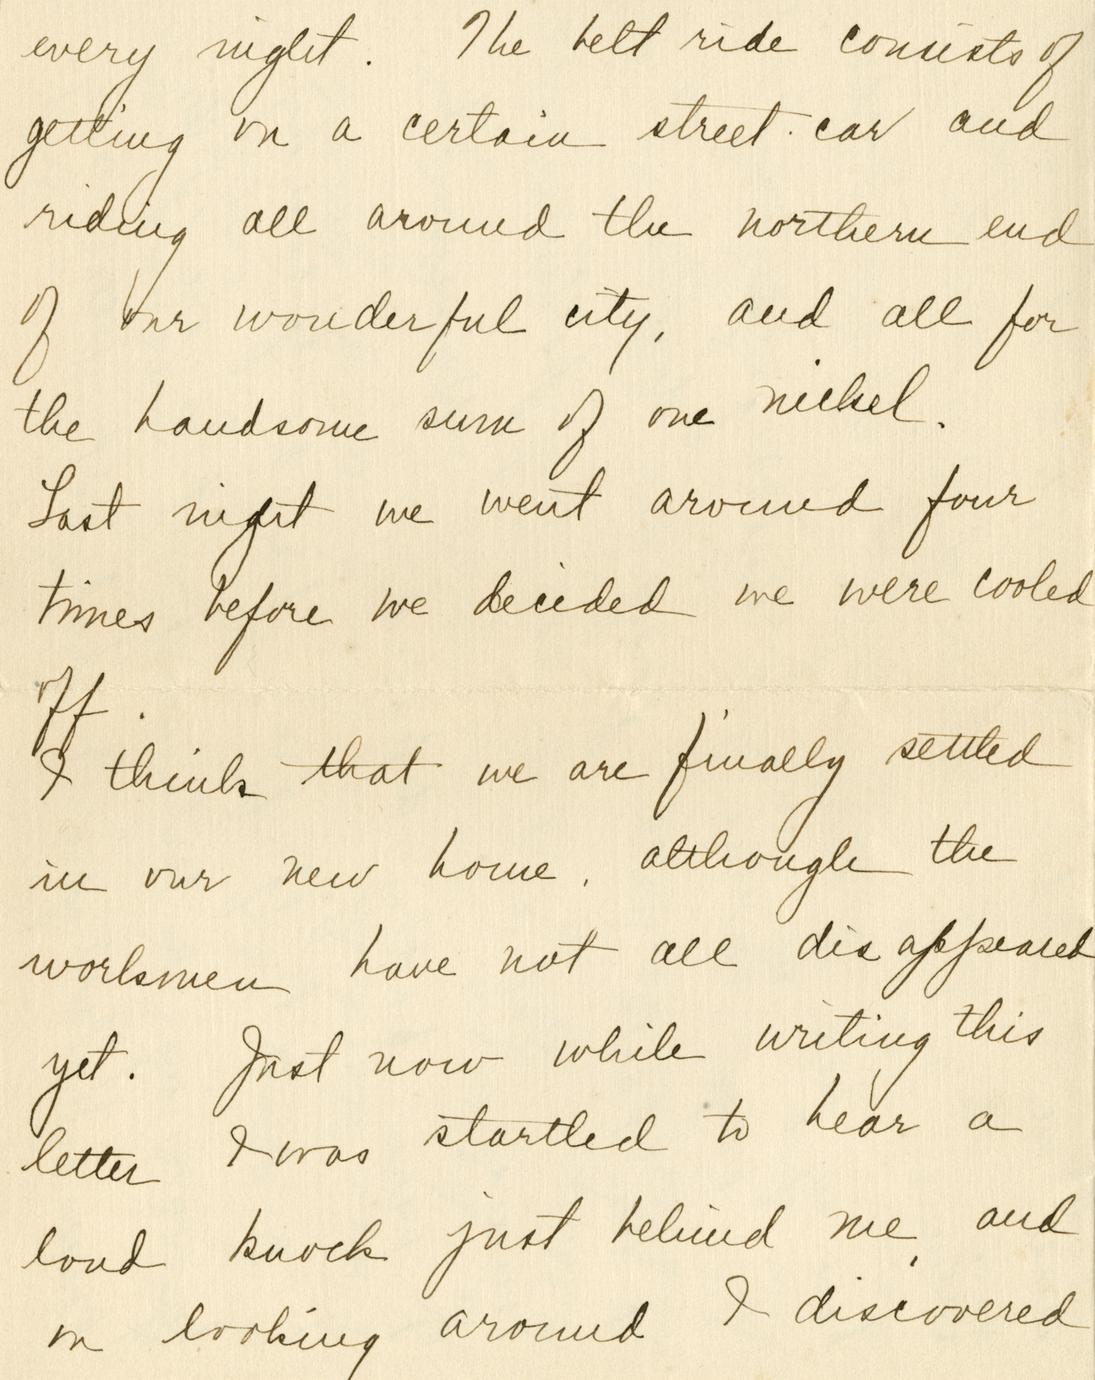 every night. The belt ride consists of
getting on a certain street-car and
riding all around the northern end
of our wonderful city, and all for
the handsome sum of one nickel.
Last night we went around four
times before we decided we were cooled
off.
I think that we are finally settled
in our new home, although the
worksmen have not all disappeared
yet. Just now while writing this
letter I was startled to hear a
loud knock just behind me, and
on looking around I discovered